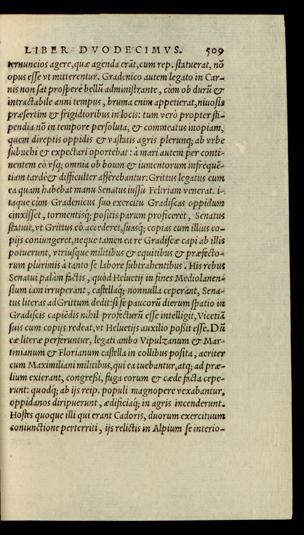 LIBER DVODECIMVS. 509
ternuncios agere, quæ agenda erãt, cum rep. statuerat, nõ
opus esse vt mitterentur. Gradenico autem legato in Car-
nis non sat prospere bellũ administrante, cùm ob durũ &
intractabile anni tempus, bruma enim appetierat, niuosis
præsertim & frigidioribus in locis: tum verò propter sti-
pendia nõ in tempore persoluta, & commeatus inopiam,
quem direptis oppidis & vastatis agris plerunq; ab vrbe
subuehi & expectari oportebat: à mari autem per conti-
nentem eò vsq; omnia ob boum & iumentorum infrequẽ-
tiam tardè & difficulter afferebantur: Grittus legatus cum
ea quam habebat manu Senatus iussu Feltriam venerat. i-
taque cùm Gradenicus suo exercitu Gradiscas oppidum
cinxisset, tormentisq; positis parum proficeret, Senatus
statuit, vt Grittus eò accederet, suasq; copias cum illius co-
pijs coniungeret, neque tamen ea re Gradiscæ capi ab illis
potuerunt, vtriusque militibus & equitibus & præfecto-
rum plurimis à tanto se labore subtrahentibus. His rebus
Senatus palàm factis, quòd Heluetij in fines Mediolanen-
sium iam irruperant, castellaq; nonnulla ceperant, Sena-
tus literas ad Grittum dedit: si se paucorũ dierum spatio in
Gradiscis capiẽdis nihil profecturũ esse intelligit, Vicetiã
suis cum copijs redeat, vt Heluetijs auxilio possit esse. Dũ
eæ literæ perferuntur, legati ambo Vipulzanum & Mar-
tinianum & Florianum castella in collibus posita, acriter
cum Maximiliani militibus, qui ea tuebantur, atq; ad præ-
lium exierant, congressi, fuga eorum & cæde facta cepe-
runt: quodq; ab ijs reip. populi magnopere vexabantur,
oppidanos diripuerunt, ædificiaq; in agris incenderunt.
Hostes quoque illi qui erant Cadoris, duorum exercituum
coniunctione perterriti, ijs relictis in Alpium se interio-